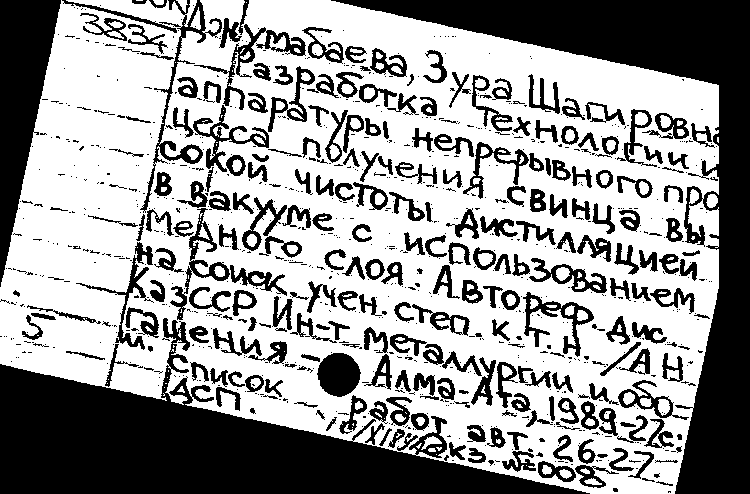 3834
Джумабаева, Зура Шагировна
Разработка технологии и
аппаратуры непрерывного про
цесса получения свинца вы-
сокой чистоты дистилляцией
в вакууме с использованием
медного слоя: Автореф. дис.
на соиск. учен. степ. к.т.н. /АН
КазССР, Ин-т металлургии и обо-
гащения - Алма-Ата, 1989-27с.
5
список работ авт.: 26-27.
ДСП. экз. №008.